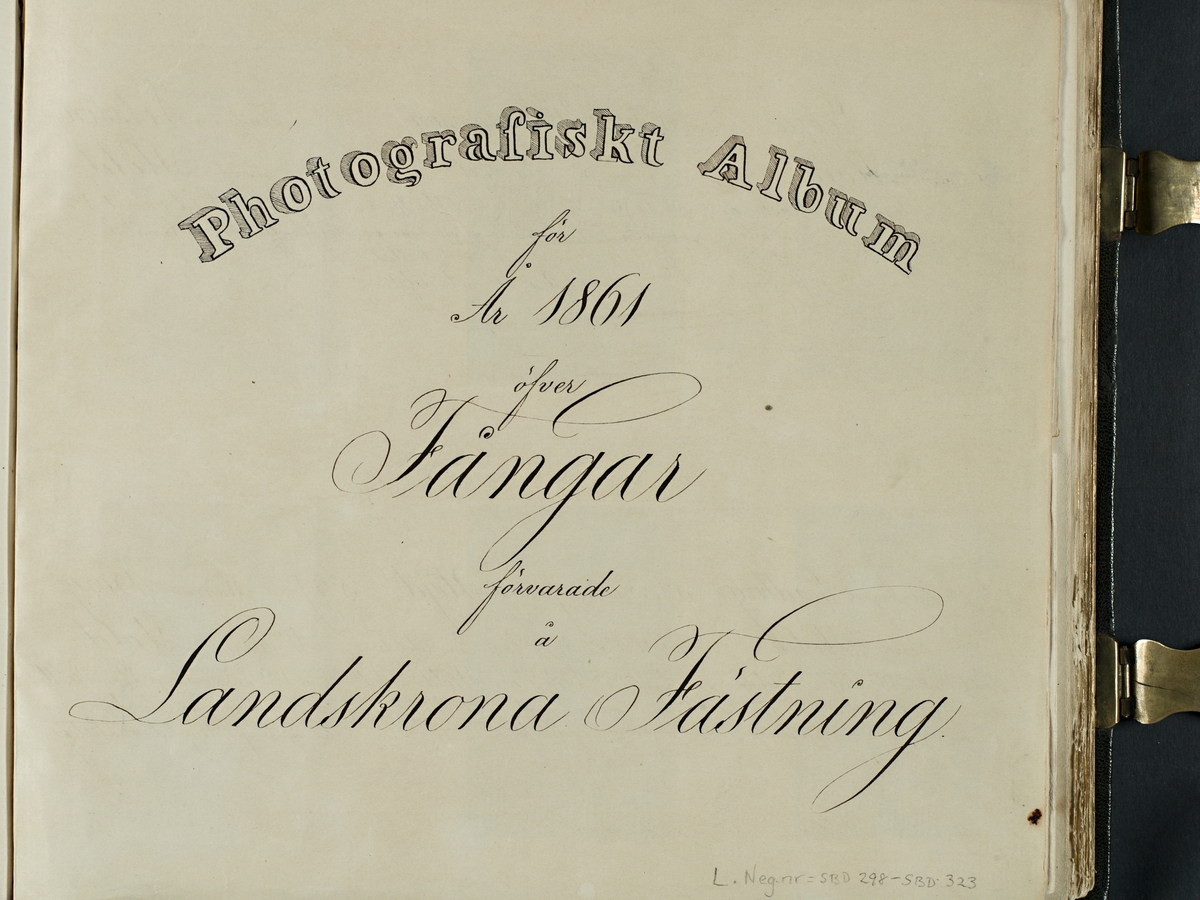 Photografiskt Album
för
År 1861
öfver
Fångar
förvarade
å
Landskrona Fästning.
L. Neg.nr = SBD 298 - SBD 323